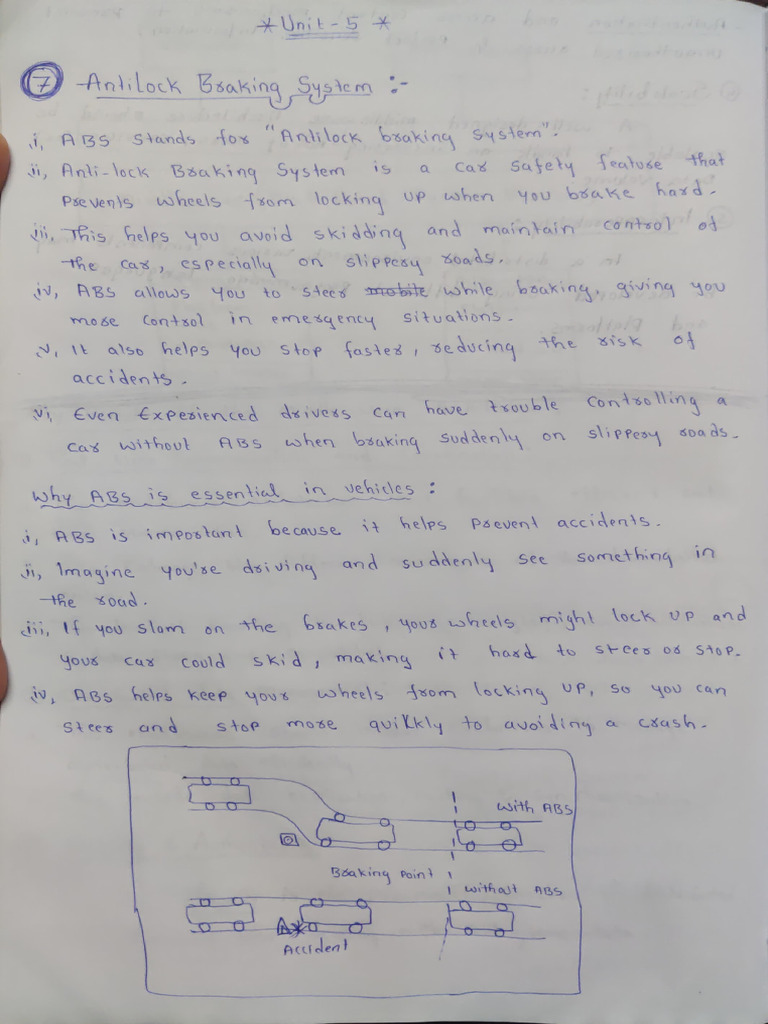 * Unit - 5 *
7 Antilock Braking System :-
i, ABS stands for "Antilock braking system".
ii, Anti-lock Braking System is a car safety feature that
prevents wheels from locking up when you brake hard.
iii, This helps you avoid skidding and maintain control of
the car, especially on slippery roads.
iv, ABS allows you to steer mobile while braking. giving you
more control in emergency situations.
v, It also helps you stop faster, reducing the risk of
accidents.
vi, Even Experienced drivers can have trouble controlling a
car without ABS when braking suddenly on slippery roads.
Why ABS is essential in vehicles :
i, ABS is important because it helps prevent accidents.
ii, Imagine you're driving and suddenly see something in
the road.
iii, If you slam on the brakes, your wheels might lock up and
your car could skid, making it hard to steer or stop.
iv, ABS helps keep your wheels from locking up, so you can
steer and stop more quikkly to avoiding a crash.
with ABS
Braking Point
without ABS
Accident